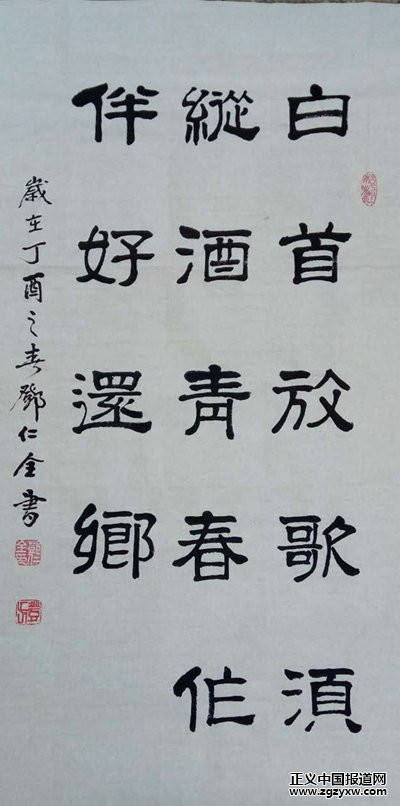 白首放歌須
縱酒青春作
伴好還鄉
歲在丁酉之春鄧仁全書
正义中国报道网
www.zgzyxw.com